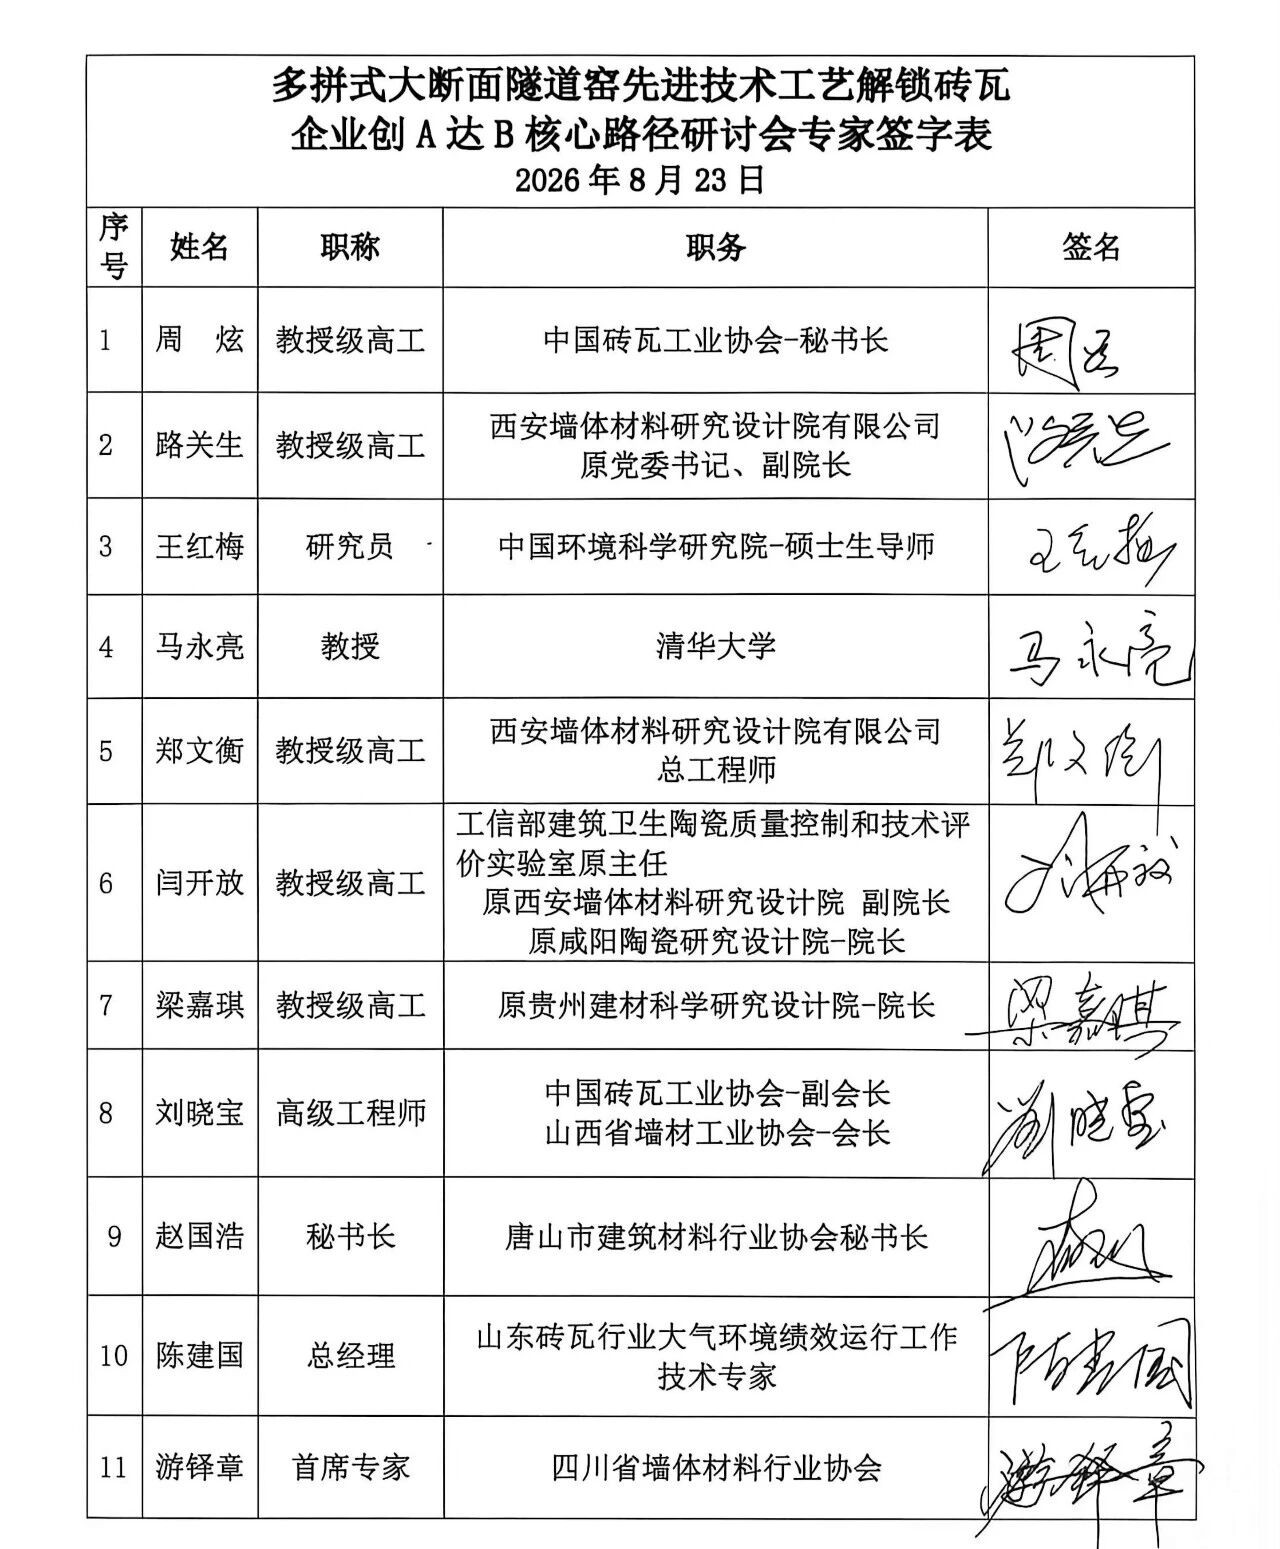 多拼式大断面隧道窑先进技术工艺解锁砖瓦
企业创 A 达 B 核心路径研讨会专家签字表
2026 年 8 月 23 日
序号 姓名 职称 职务 签名
1 周 炫 教授级高工 中国砖瓦工业协会-秘书长 周
2 路关生 教授级高工 西安墙体材料研究设计院有限公司
原党委书记、副院长
3 王红梅 研究员 中国环境科学研究院-硕士生导师 王红梅
4 马永亮 教授 清华大学 马永亮
5 郑文衡 教授级高工 西安墙体材料研究设计院有限公司
总工程师 郑文衡
6 闫开放 教授级高工 工信部建筑卫生陶瓷质量控制和技术评
价实验室原主任
原西安墙体材料研究设计院 副院长
原咸阳陶瓷研究设计院-院长
7 梁嘉琪 教授级高工 原贵州建材科学研究设计院-院长 梁嘉琪
8 刘晓宝 高级工程师 中国砖瓦工业协会-副会长
山西省墙材工业协会-会长 刘晓宝
9 赵国浩 秘书长 唐山市建筑材料行业协会秘书长
10 陈建国 总经理 山东砖瓦行业大气环境绩效运行工作
技术专家 陈建国
11 游铎章 首席专家 四川省墙体材料行业协会 游铎章